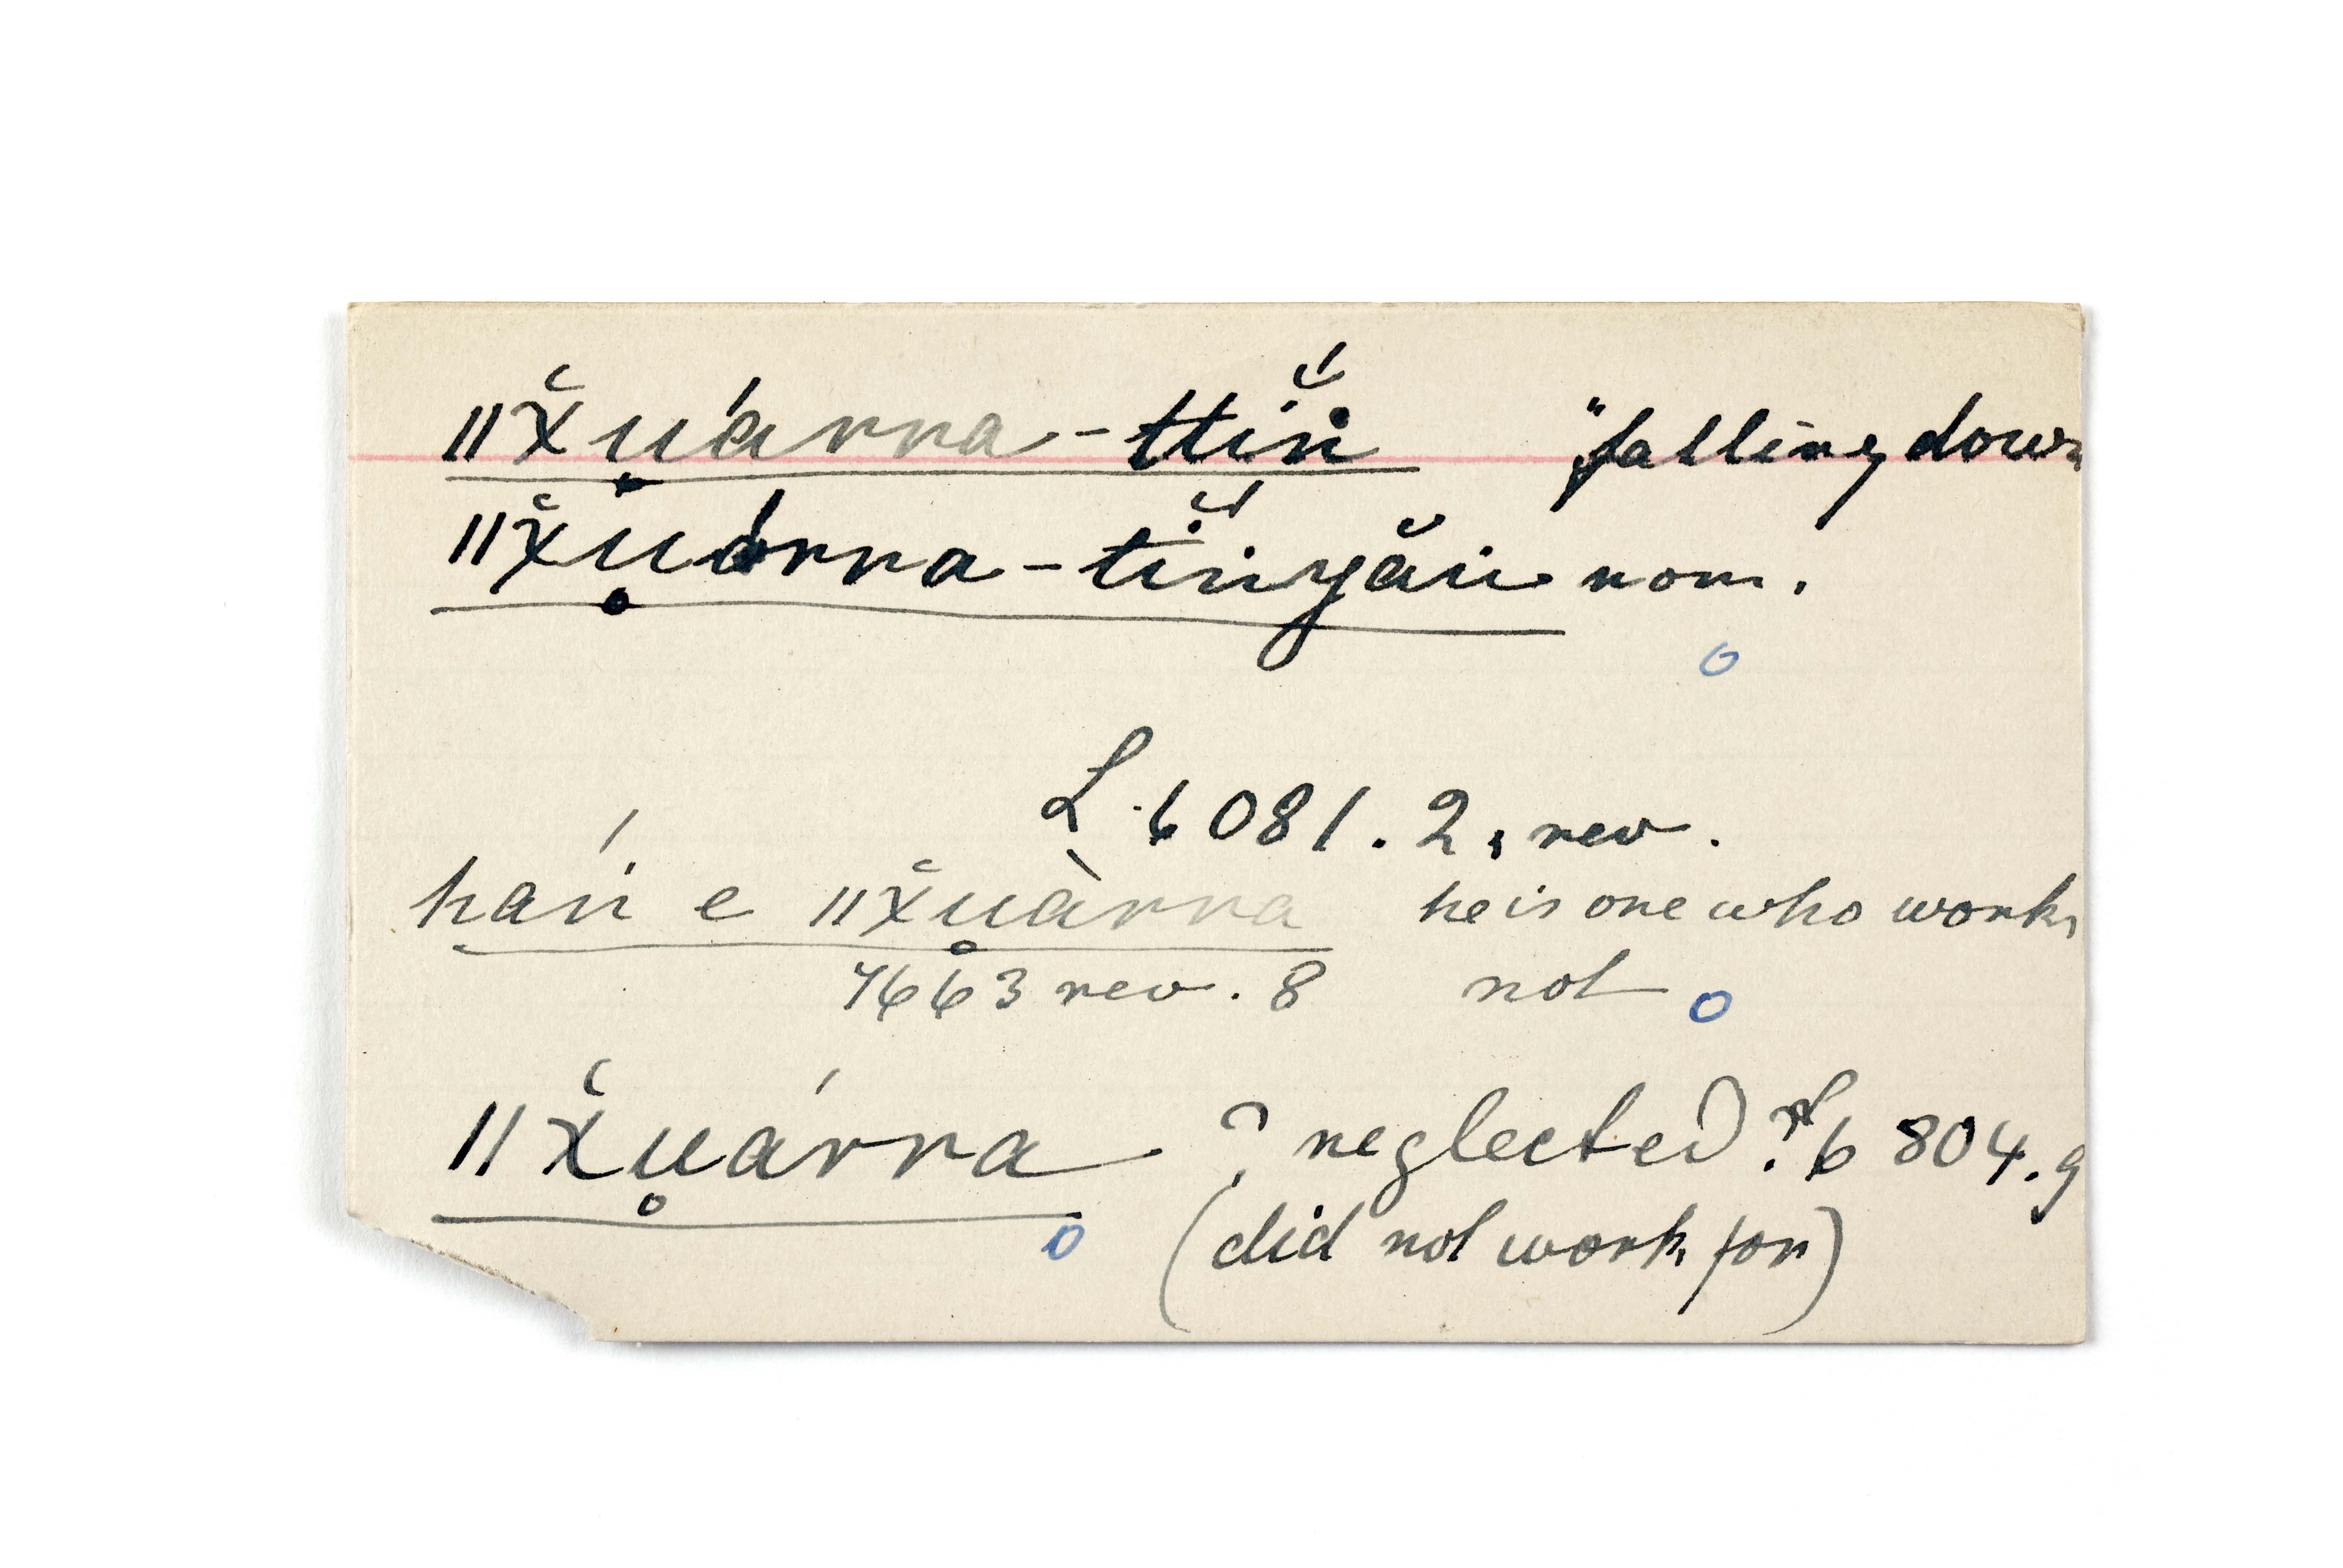 ǁx̆u̥árra-ttĭ́ṅ "falling down
ǁx̆u̥árra-tĭ́ṅyăṅ nom.
L. 6081.2, rev.
háṅ e ǁx̆u̥àrra he is one who works
7663 rev. 8 not
ǁx̆u̥árra ? neglected? L 6804.9
(did not work for)